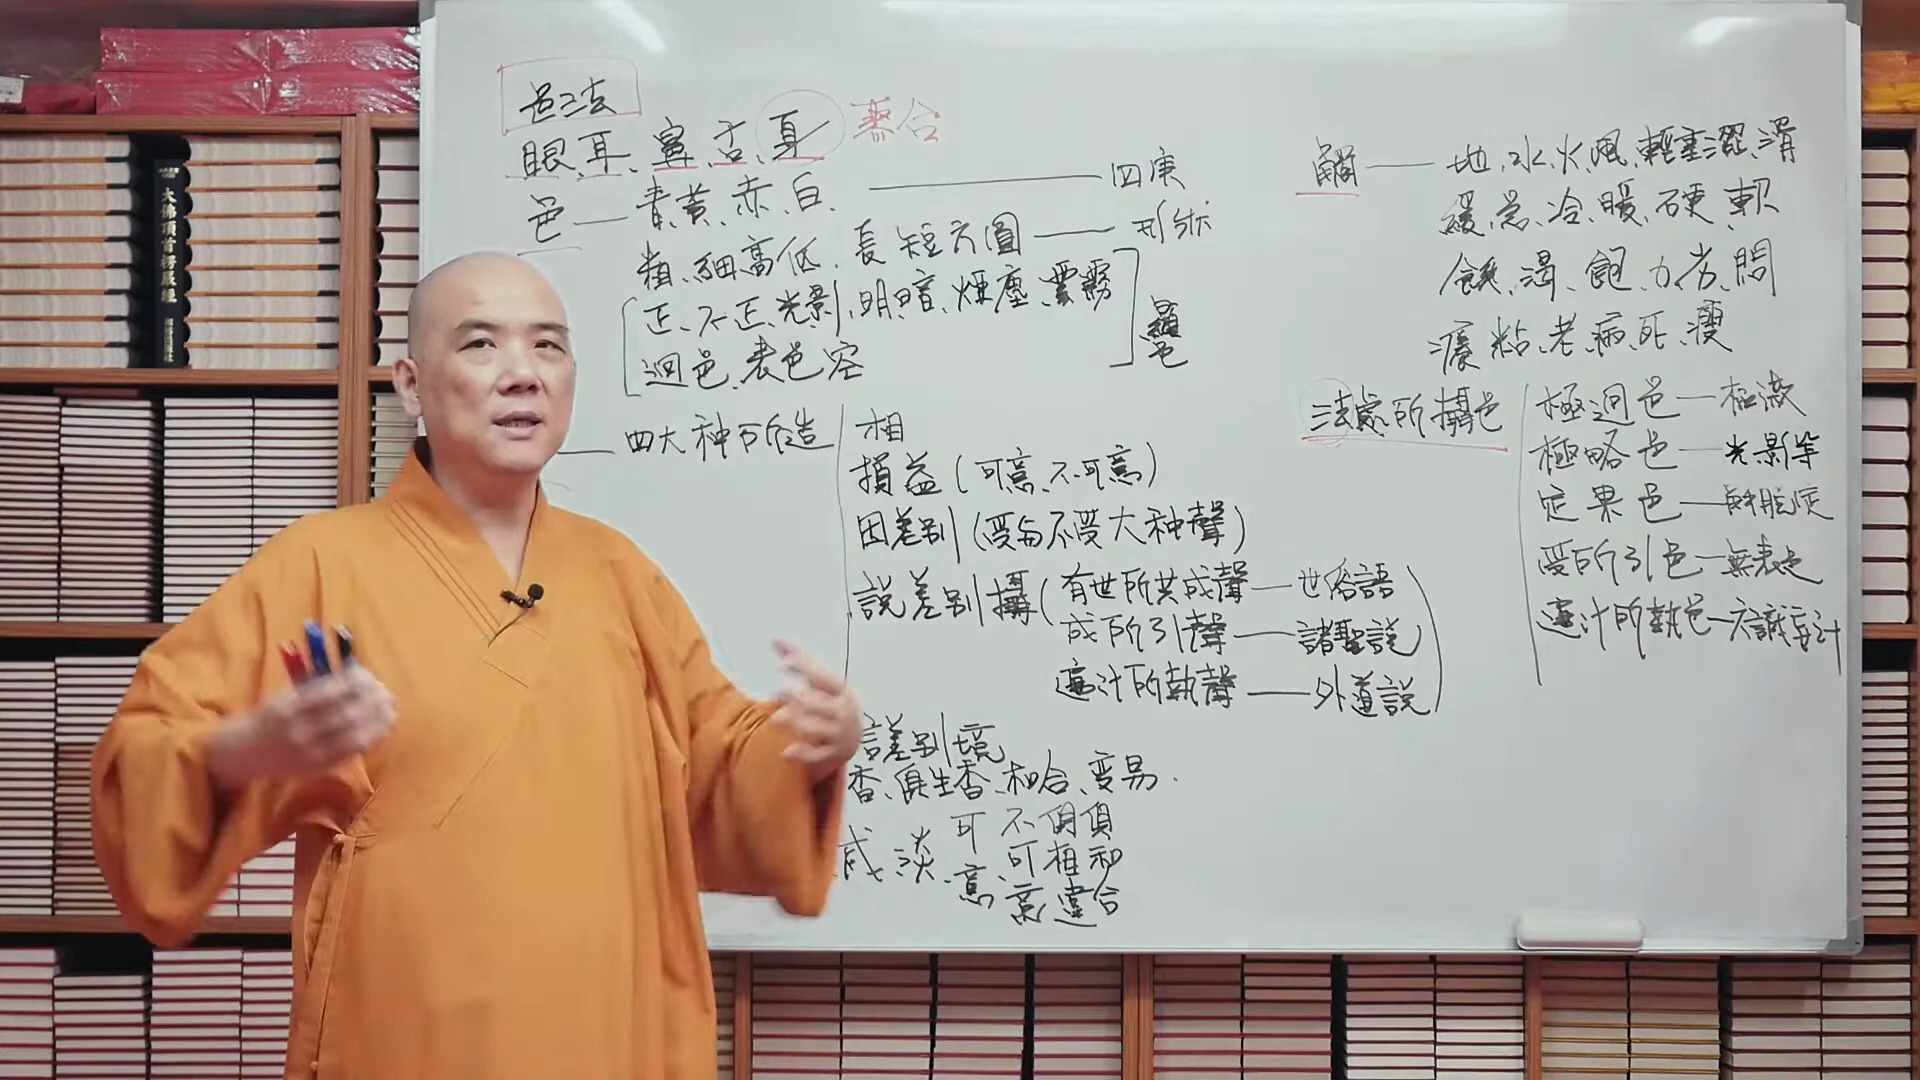 色法
眼、耳、鼻、舌、身 聚合
色—青、黃、赤、白 —— 四庚
粗、細、高、低、長短方圓 —— 形狀
正、不正、光影、明暗、煙塵、雲霧
迥色、表色、空
顯色
四大种所造
相
損益(可意、不可意)
因差别(受与不受大种聲)
說差别攝(有世所共成聲—世俗語
成所引聲——諸聖說
遍計所執聲——外道說)
差别境
香、俱生香、和合、变易.
淡 可意 不可意 俱相違 和合
觸——地、水、火、風、輕重澀、滑
緩、急、冷、暖、硬、軟
餓、渴、飽、力、劣、悶
癢、粘、老、病、死、瘦
法處所攝色
極迥色—極微
極略色—光影等
定果色—解脫定
受所引色—無表色
遍計所執色—六識妄計
大佛頂首楞嚴經